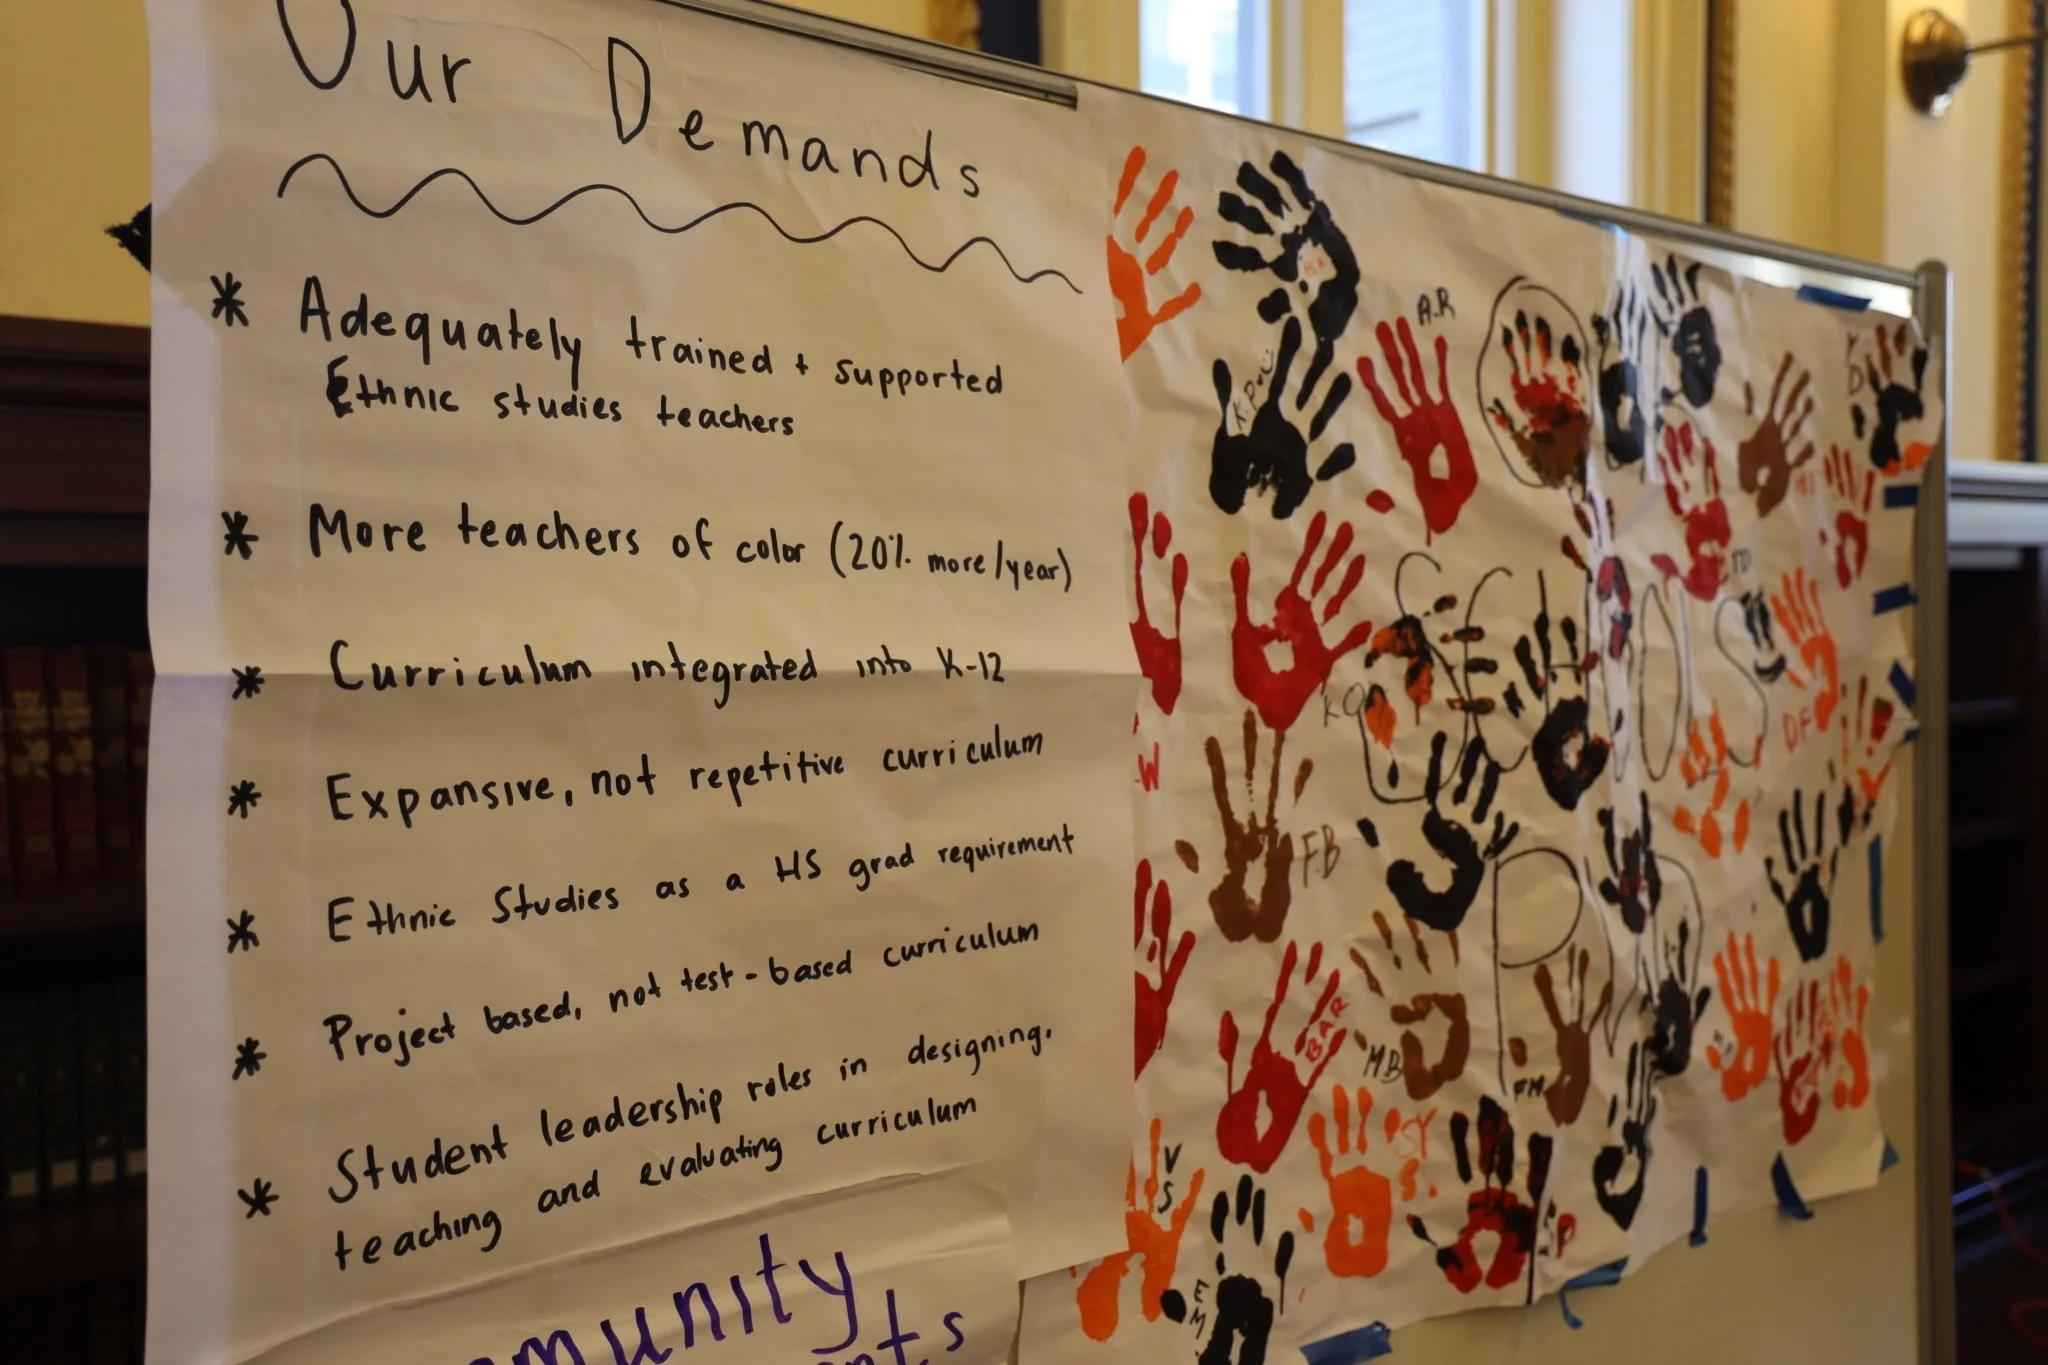 Our Demands
* Adequately trained + supported
Ethnic studies teachers
* More teachers of color (20% more/year)
* Curriculum integrated into K-12
* Expansive, not repetitive curriculum
* Ethnic Studies as a HS grad requirement
* Project based, not test-based curriculum
* Student leadership roles in designing,
teaching and evaluating curriculum
A.R
K.P
TD
KO
DF
F.B
BAR
MB
FM
SY
S.
V
S
E
M